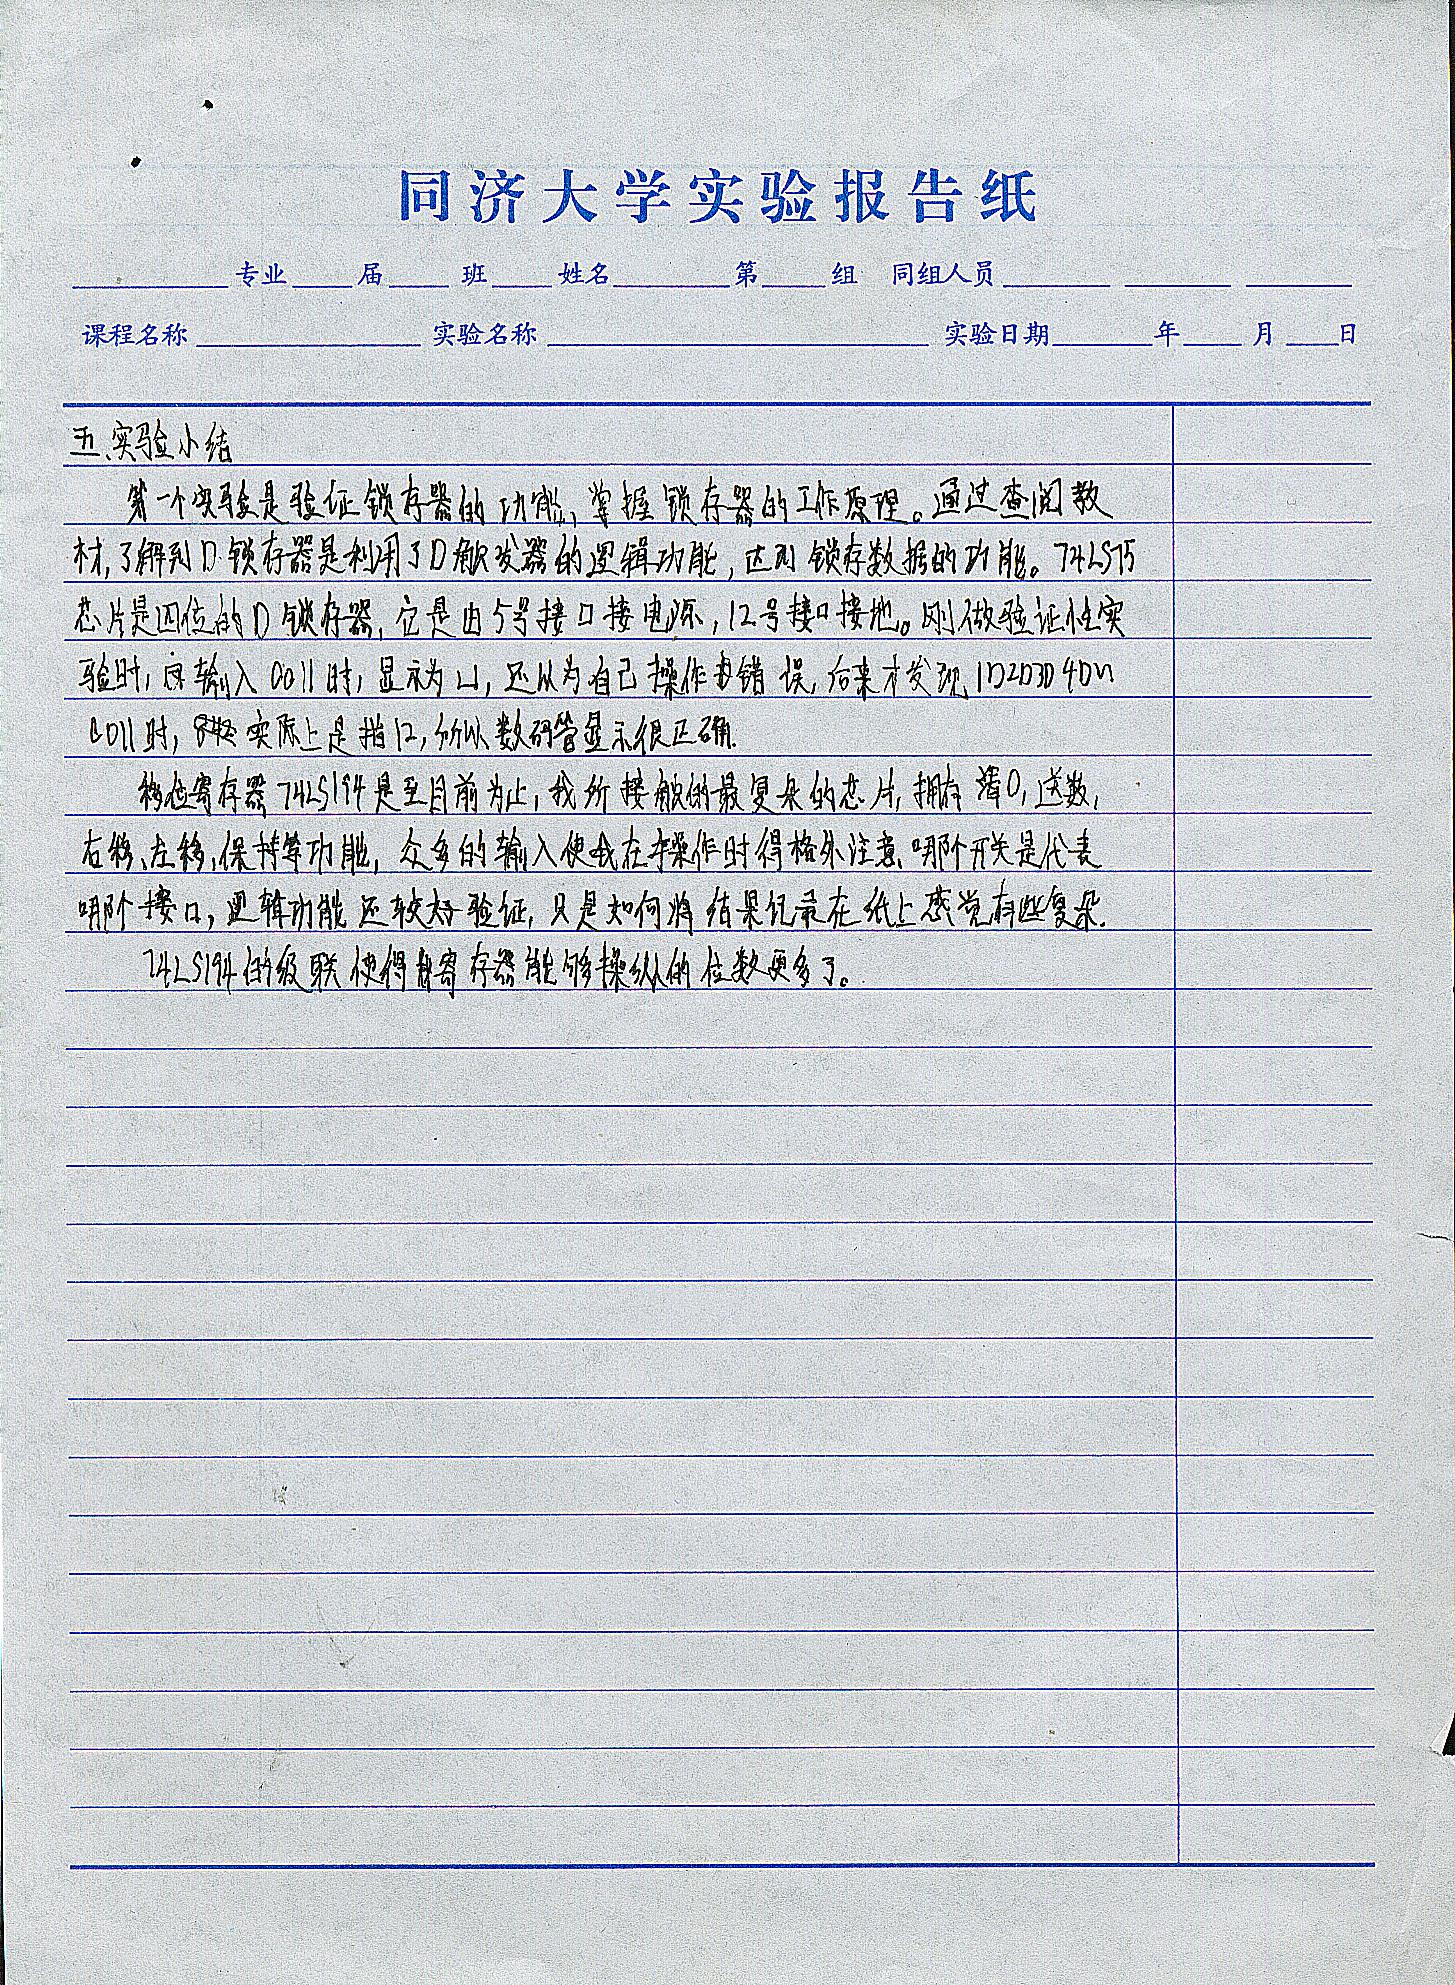 同济大学实验报告纸
专业 届 班 姓名 第 组 同组人员
课程名称 实验名称 实验日期 年 月 日
五、实验小结
第一个实验是验证锁存器的功能、掌握锁存器的工作原理。通过查阅教
材,了解到D锁存器是利用了D触发器的逻辑功能,达到锁存数据的功能。74LS75
芯片是四位的D锁存器,它是由5号接口接电源,12号接口接地。刚做验证性实
验时,向输入0011时,显示为凵,还以为自己操作错误,后来才发现1D2D3D4D为
0011时,实际上是指12,所以数码管显示很正确.
移位寄存器74LS194是至目前为止,我所接触的最复杂的芯片,拥有清0,送数,
右移、左移、保持等功能,众多的输入使我在操作时得格外注意、哪个开关是代表
哪个接口,逻辑功能还较好验证,只是如何将结果记录在纸上感觉有些复杂.
74LS194的级联使得寄存器能够操纵的位数更多了。